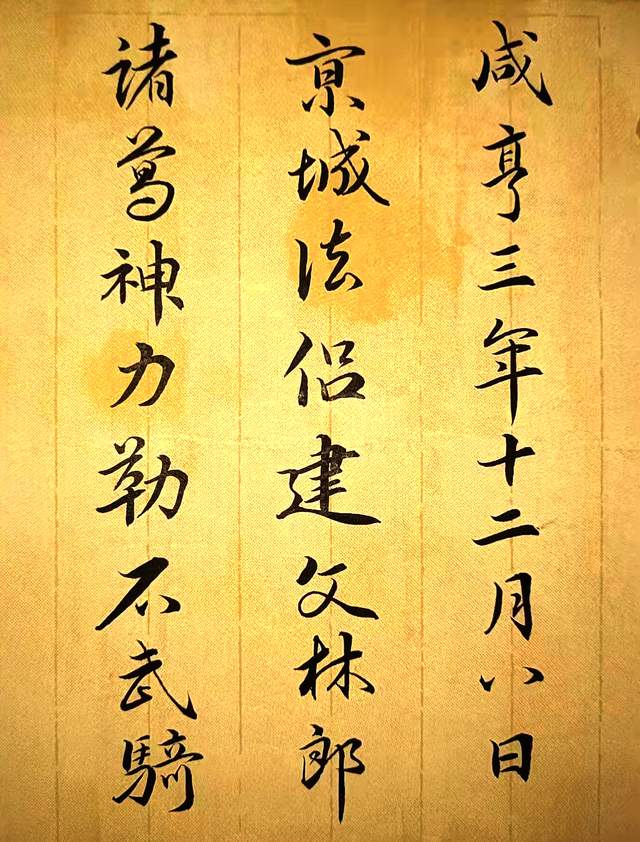 咸亨三年十二月八日
京城法侣建文林郎
諸葛神力勒石武騎